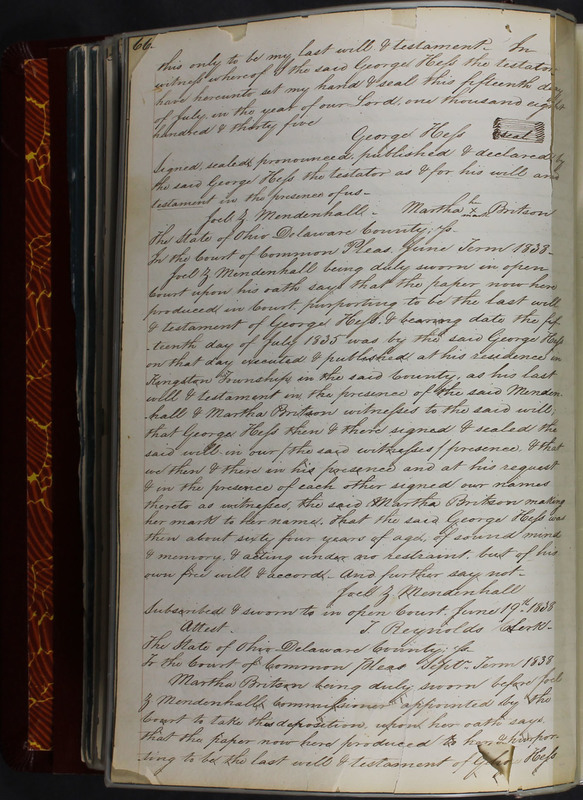 66.
this only to be my last will & testament. In
witness whereof I the said George Hess the testator
have hereunto set my hand & seal this fifteenth day
of July in the year of our Lord, one thousand eight
hundred & thirty five
George Hess seal
Signed, sealed, pronounced, published & declared by
the said George Hess the testator as & for his will and
testament in the presence of us-
Joel Z Mendenhall - Martha x Britson
The State of Ohio Delaware County, ss.
In the Court of Common Pleas, June Term 1838-
Joel Z Mendenhall being duly sworn in open
Court upon his oath says that the paper now here
produced in Court, purporting to be the last will
& testament of George Hess, & bearing date the fif-
teenth day of July 1835 was by the said George Hess
on that day executed & published at his residence in
Kingston Township, in the said County, as his last
will & testament in the presence of the said Menden-
hall & Martha Britson witnesses to the said will,
that George Hess then & there signed & sealed the
said will in our /the said witnesses/ presence, & that
we then & there in his presence and at his request
& in the presence of each other signed our names
thereto as witnesses, the said Martha Britson making
her mark to her name. That the said George Hess was
then about sixty four years of age, of sound mind
& memory, & acting under no restraint, but of his
own free will & accord. And further say not-
Joel Z Mendenhall
Subscribed & sworn to in open Court, June 19th 1838
Attest. T. Reynolds Clerk-
The State of Ohio Delaware County, ss.
In the Court of Common Pleas Septr. Term 1838
Martha Britson being duly sworn before Joel
Z Mendenhall Commissioner appointed by the
Court to take this deposition, upon her oath says,
that the paper now here produced to her, & purpor-
ting to be the last will & testament of Geo Hess